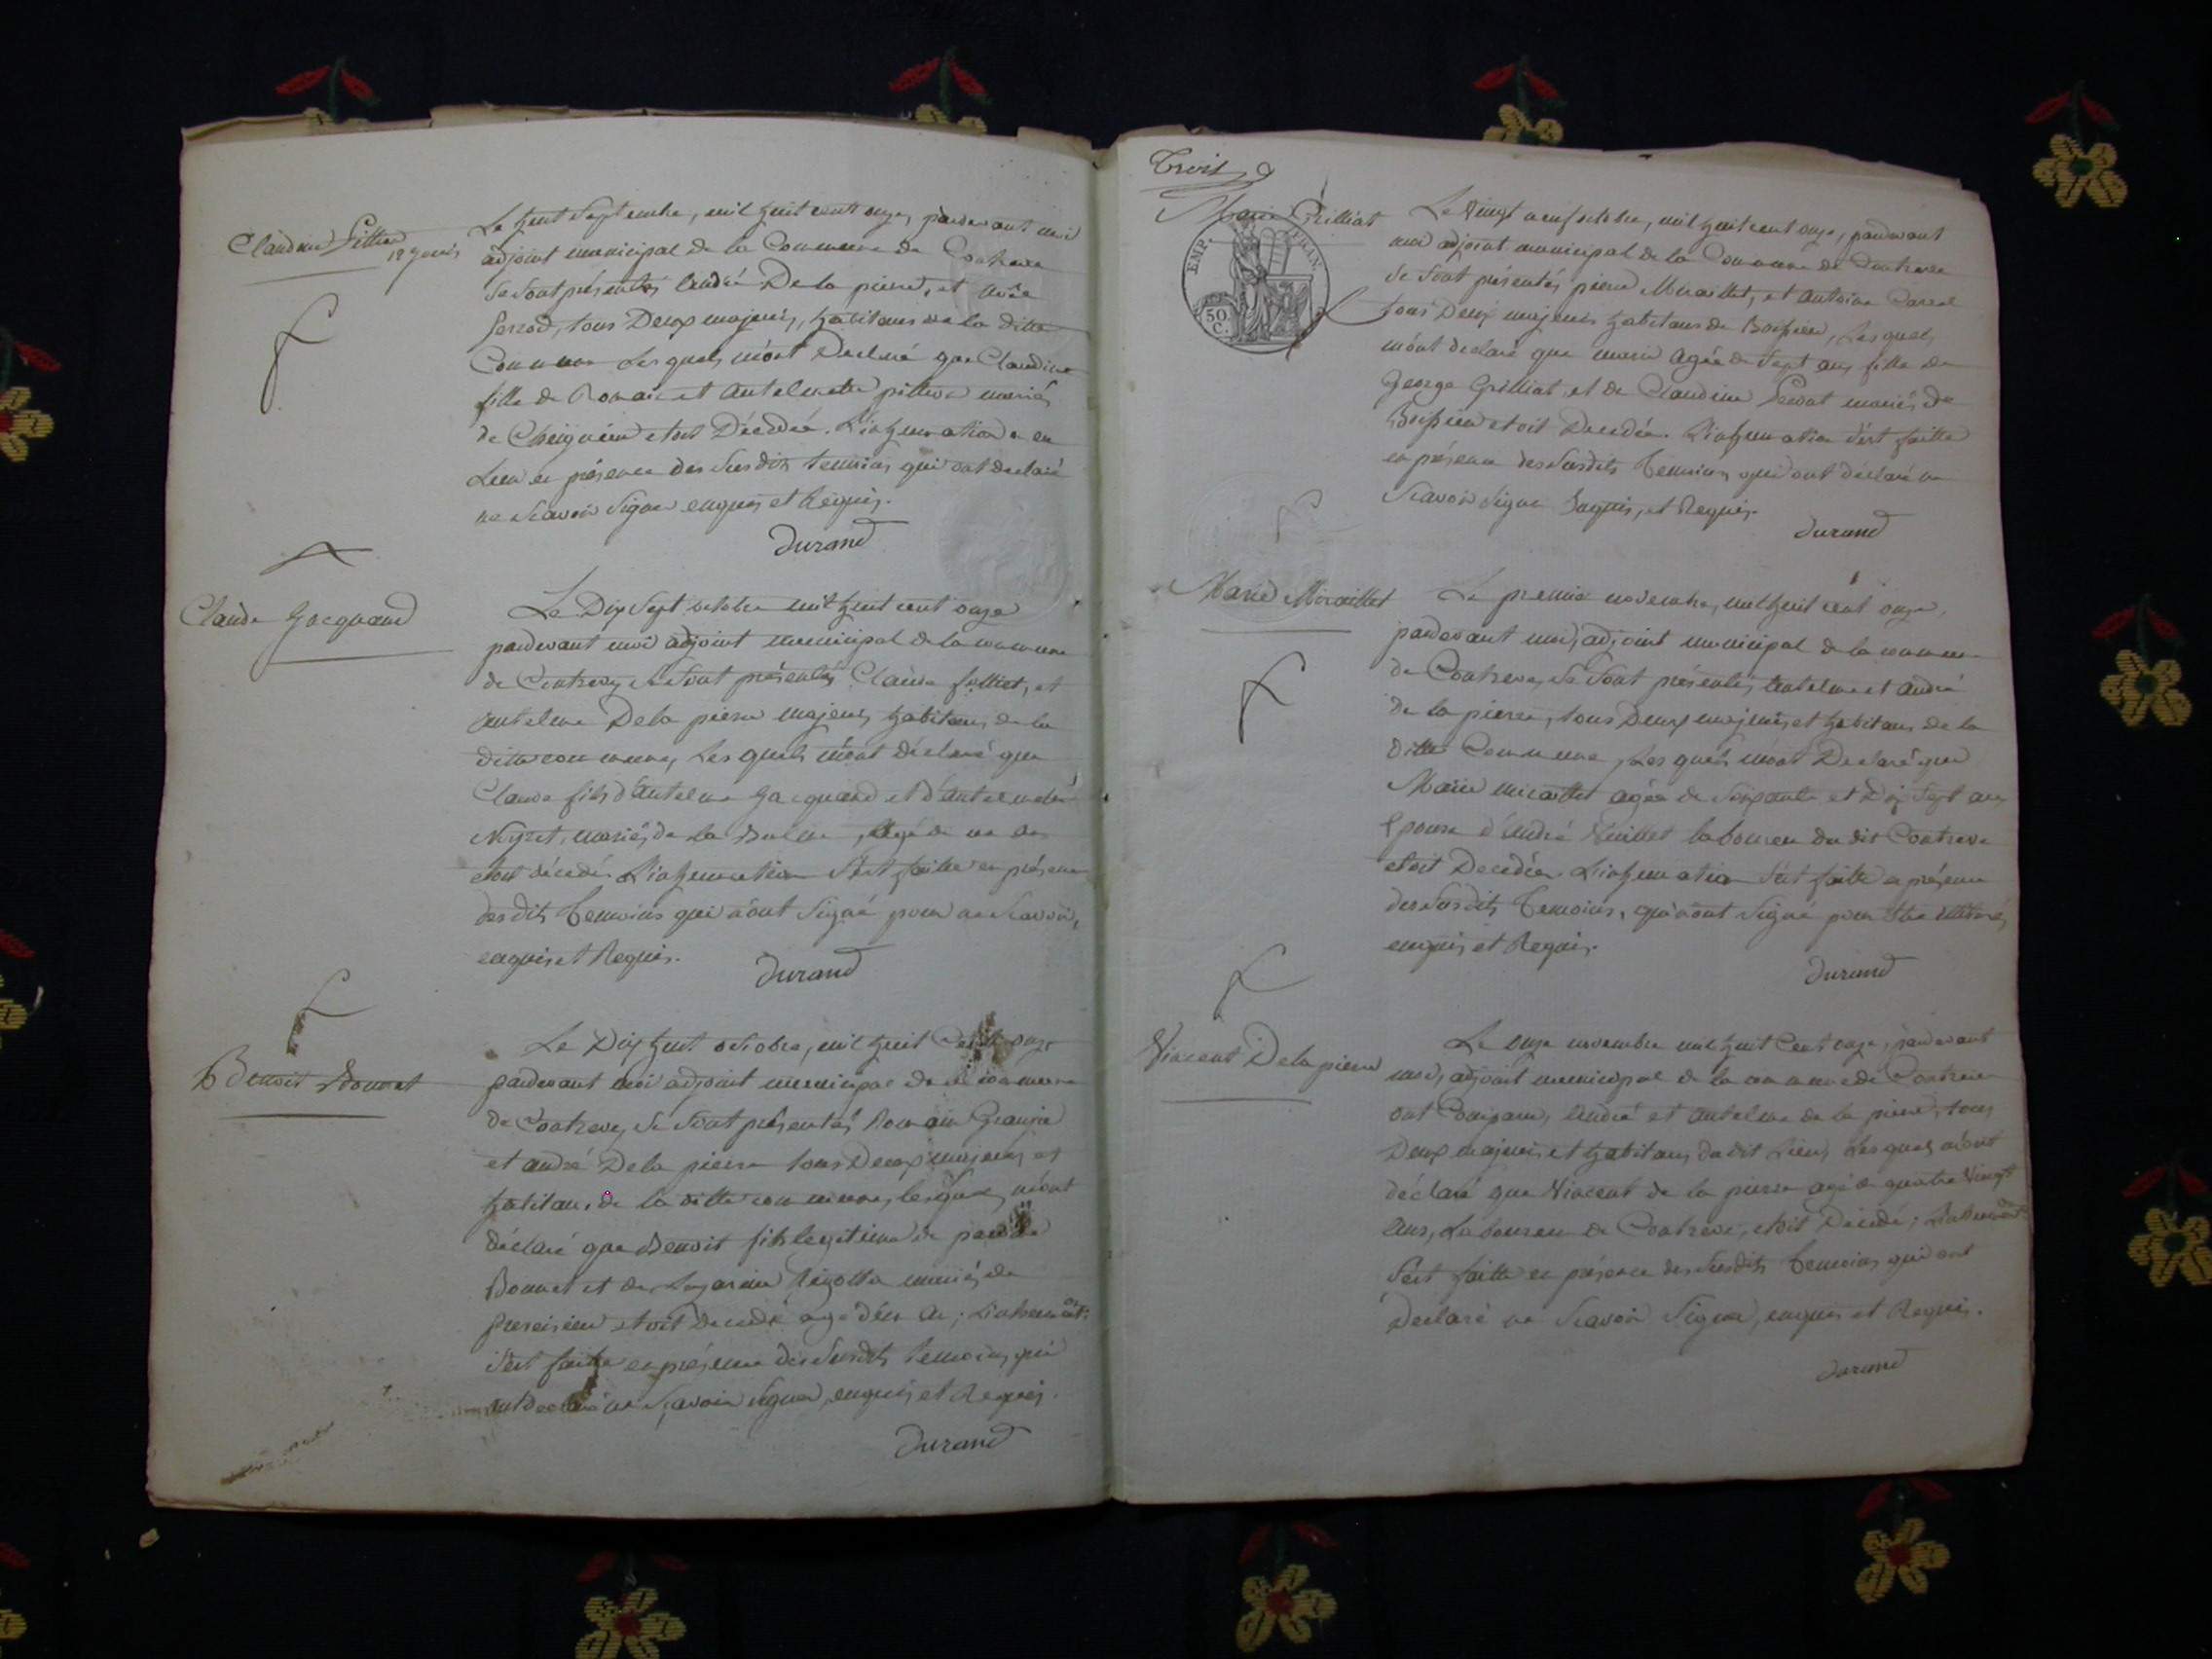 Claudine Pittion
18 jours
Le huit Septembre, mil huit cent onze, pardevant moi
adjoint municipal de la Commune de Contrevoz
Se Sont présentés André De la pierre, et
tous Deux majeurs, habitans de la ditte
Commune Lesquels m'ont Declaré que Claudine
fille de Romain et Antelmette pittion mariés
de Cheignieu etoit Décédée. L'inhumation a eu
Lieu en présence des Susdits temoins qui ont declaré
ne Scavoir Signer enquis et Requis.
Durand
Claude Gacquand
Le Dix Sept octobre mil huit cent onze
pardevant moi adjoint municipal de la commune
de Contrevoz, se Sont présentés Claude folliet, et
Antelme De la pierre majeurs habitans de la
ditte commune, Lesquels m'ont déclaré que
Claude fils d'Antelme Gacquand et d'Antelmette
mariés de la Balme, agé de un an
etoit décédé. L'inhumation S'est faitte en présence
desdits temoins qui n'ont Signé pour ne Scavoir,
enquis et Requis.
Durand
Benoit Bonnet
Le Dix huit octobre, mil huit Cent onze
pardevant moi adjoint municipal de la commune
de Contrevoz, se Sont présentés Romain
et André De la pierre tous Deux majeurs et
habitans de la ditte commune, lesquels m'ont
déclaré que Benoit fils legitime de
Bonnet et de mariés de
etoit Decedé agé d'un an; L'inhumaon.
S'est faitte en présence des Susdits temoins qui
ont declaré ne Scavoir signer, enquis et Requis.
Durand
Trois
EMP. FRAN.
50 C.
Marie Grilliat
Le Vingt neuf octobre, mil huit cent onze, pardevant
moi adjoint municipal de la Commune de Contrevoz
Se Sont présentés pierre Miraillet, et Antoine
tous Deux majeurs habitans de Boissieu, Lesquels
m'ont declaré que marie Agée de Sept ans fille de
George Grilliat et de Claudine mariés de
Boissieu etoit Decedée. L'inhumation S'est faitte
en présence des Susdits Temoins qui ont déclaré ne
Scavoir Signer Enquis, et Requis.
Durand
Marie Miraillet
Le premier novembre, mil huit cent onze,
pardevant moi, adjoint municipal de la commune
de Contrevoz, se Sont présentés Antelme et André
De la pierre, tous Deux majeurs, et habitans de la
ditte Commune, Lesquels m'ont Declaré que
Marie miraillet agée de Soixante et Dix Sept ans
Epouse d'André laboureur du dit Contrevoz
etoit Decedée. L'inhumation S'est faitte en présence
des Susdits Temoins, qui n'ont Signé pour être illiterés
enquis et Requis.
Durand
Vincent De la pierre
Le onze novembre mil huit Cent onze, pardevant
moi, adjoint municipal de la commune de Contrevoz
ont Comparus André et Antelme de la pierre, tous
Deux majeurs et habitans du dit Lieu, Lesquels m'ont
déclaré que Vincent de la pierre agé de quatre Vingt
ans, Laboureur de Contrevoz, etoit Décédé; L'inhumaon
S'est faitte en présence des Susdits temoins qui ont
Declaré ne Scavoir Signer, enquis et Requis.
Durand